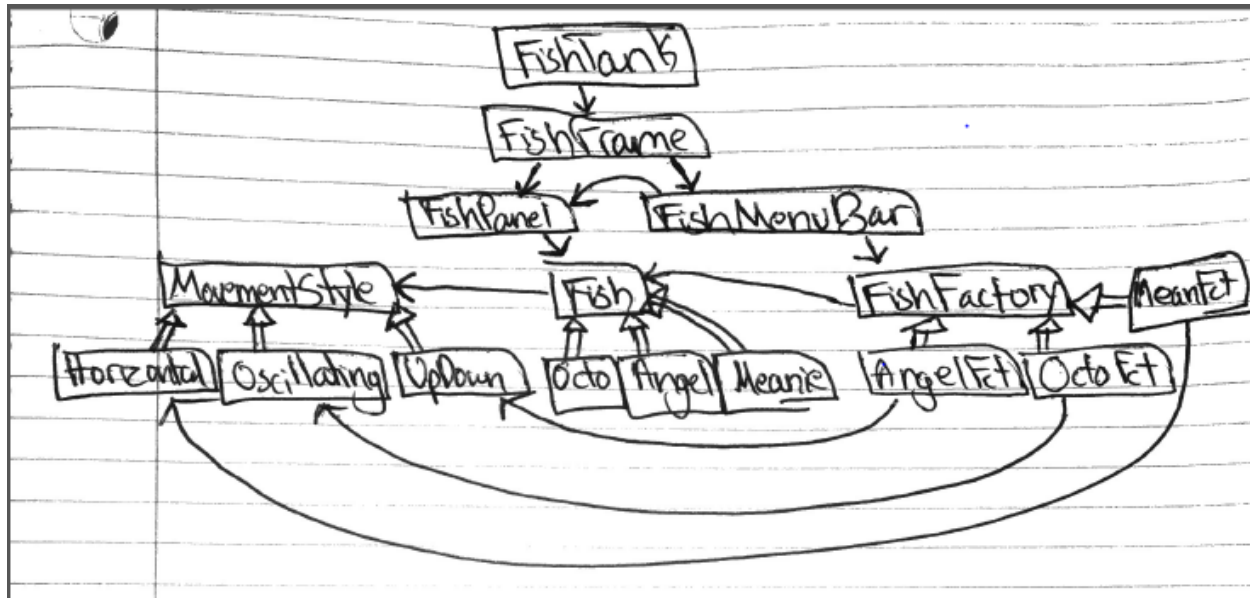 FishTank
FishFrame
FishPanel FishMenuBar
MovementStyle Fish FishFactory MeanFct
Horizontal Oscillating UpDown Octo Angel Meanie AngelFct OctoFct